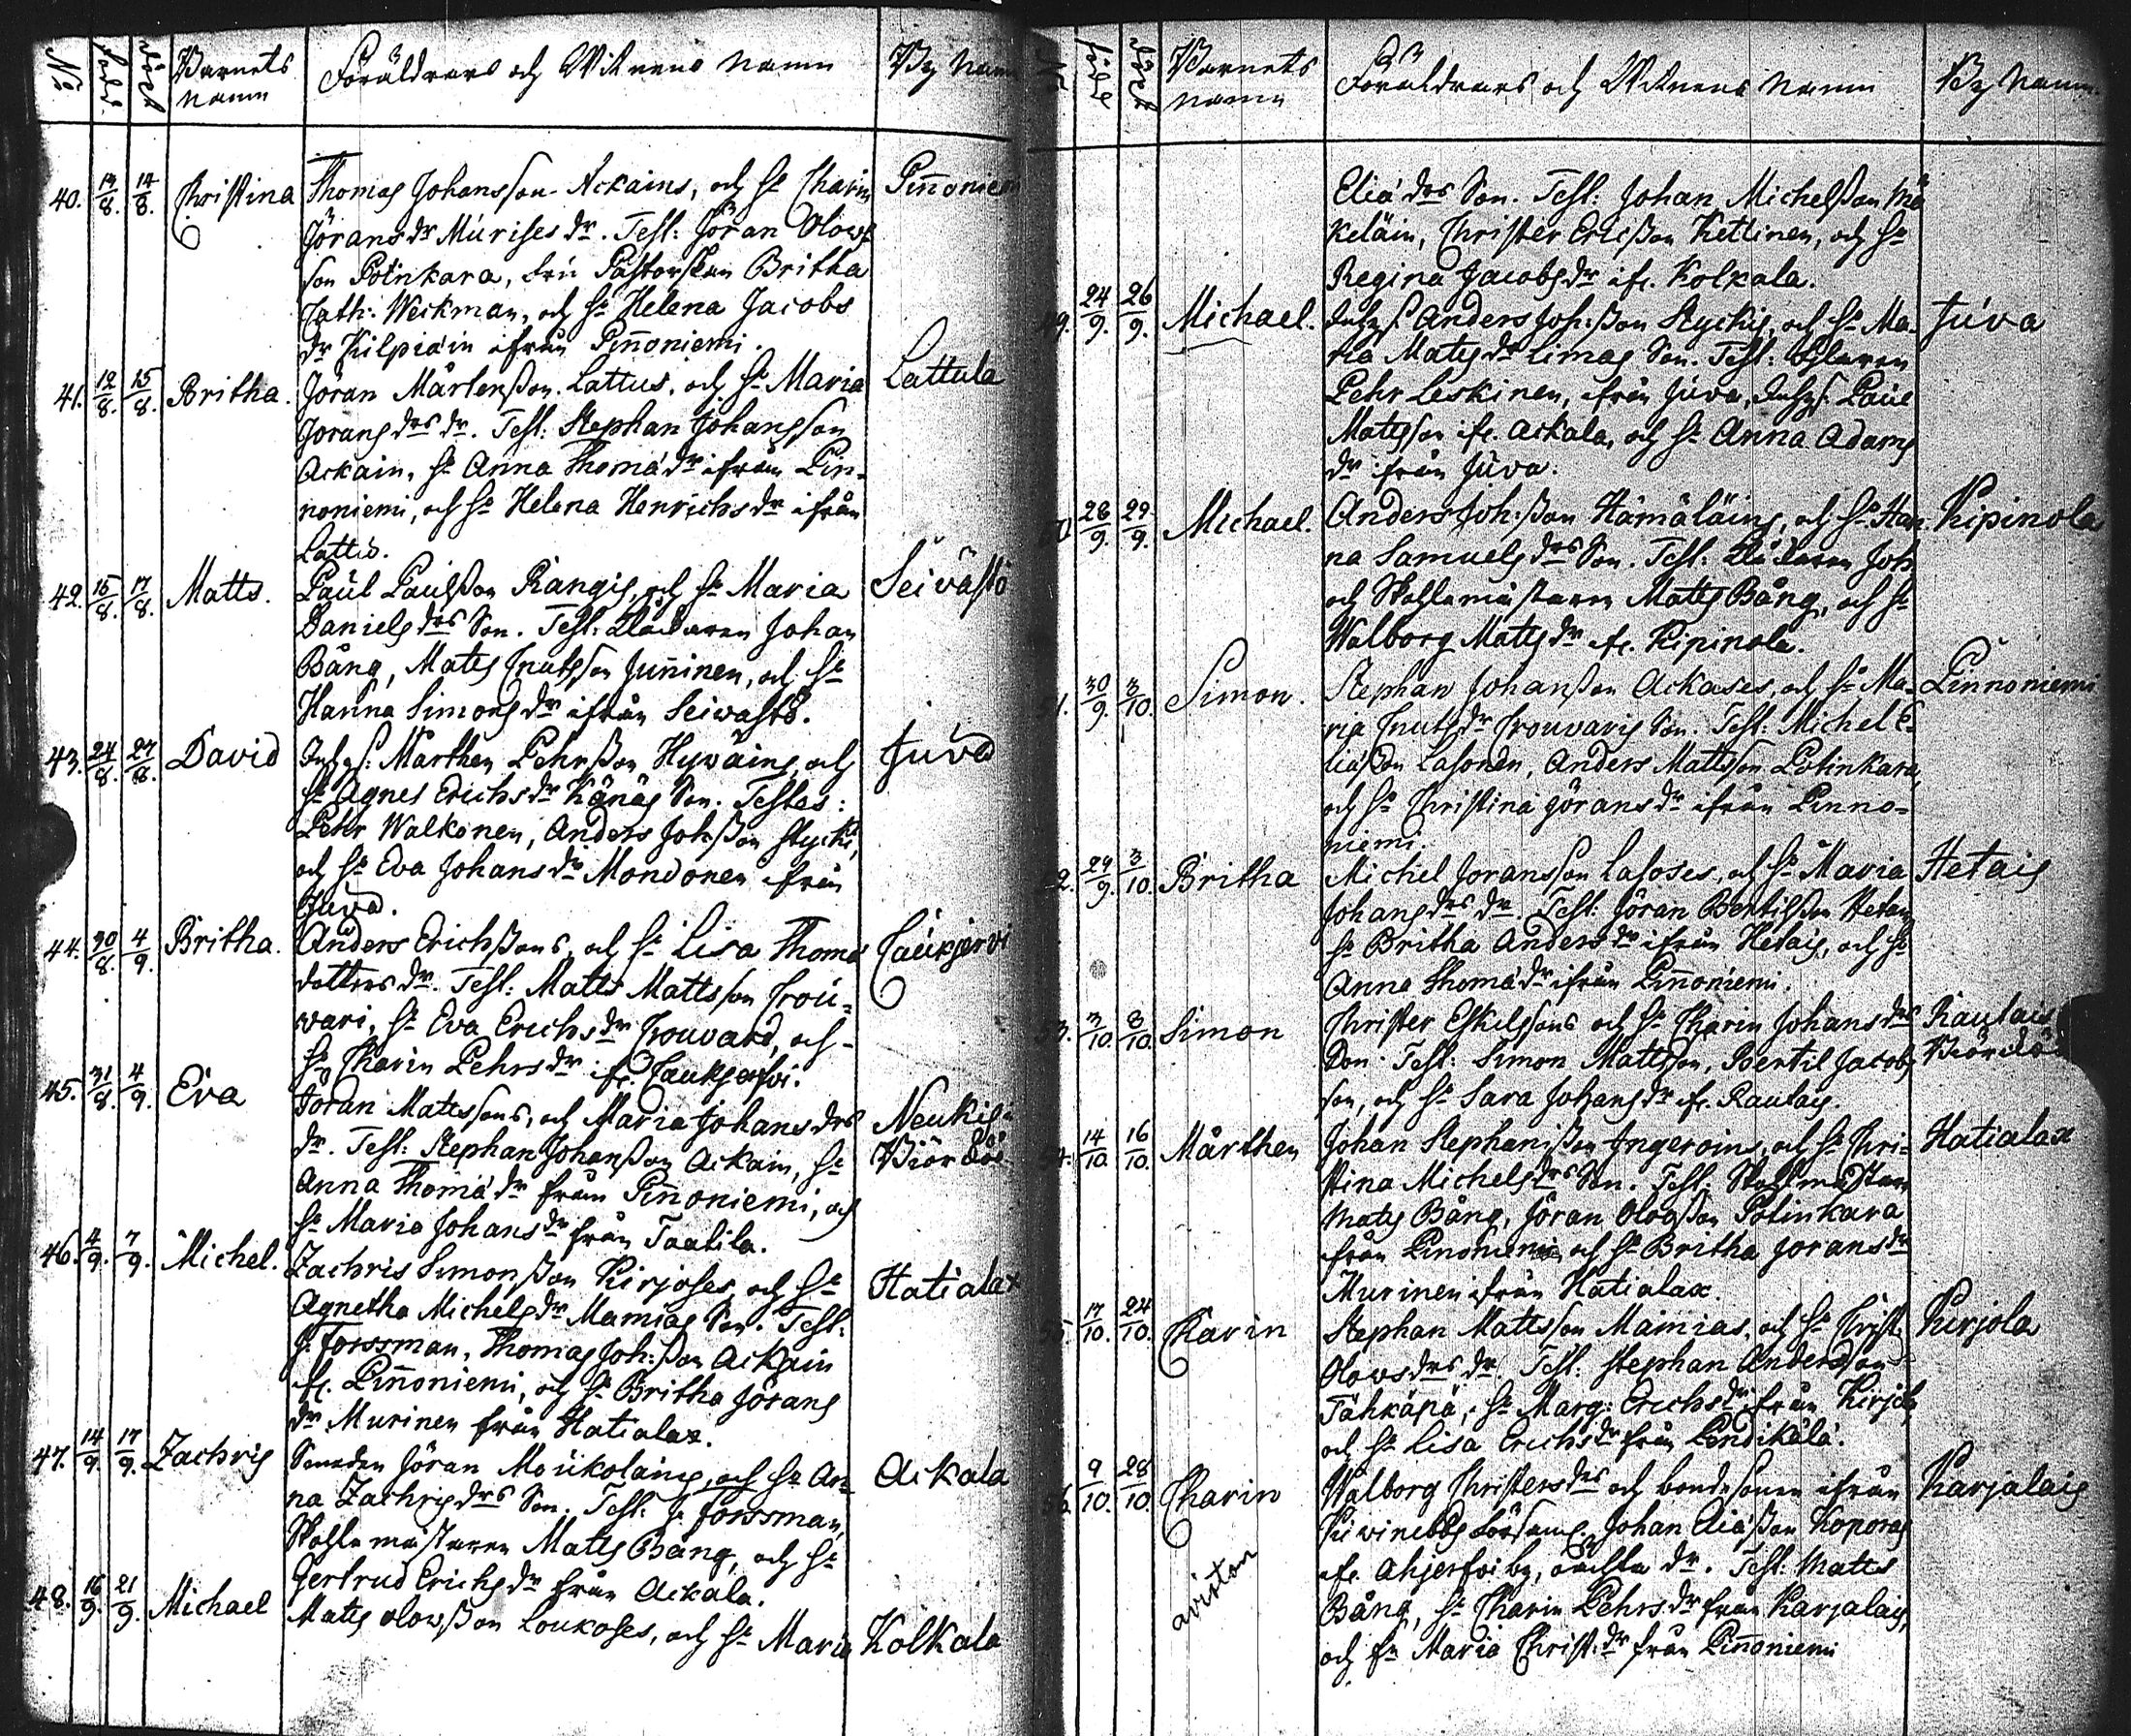 No
född
döpt
Barnets
namn
Föräldrars och Witnens namn
By namn
40. 14/8. 14/8. Christina Thomas Johansson Ackains, och h: Charin Pinnoniemi
Jörans dr Murises dr. Test: Jöran Olows
son Potinkara, fru Pastorskan Britha
Cath: Weckman, och h: Helena Jacobs
dr Kilpiäin ifrån Pinnoniemi.
41. 12/8. 15/8. Britha. Jöran Mårtensson Lattus, och h: Maria Lattula
Jörans drs dr. Test: Stephan Johansson
Ackain, h: Anna Thomä dr ifrån Pin-
noniemi, och h: Helena Henrichs dr ifrån
Lattis.
42. 15/8. 17/8. Matts. Paul Paulsson Rangis, och h: Maria Seivästö
Daniels drs Son. Test: Klåckaren Johan
Bång, Mats Cnutsson Junninen, och h:
Hanna Simons dr ifrån Seiwastö.
43. 24/8. 27/8. David Inhys: Mårthen Pehrsson Hywäins, och Juva
h: Agnes Erichs dr Känäs Son. Testes:
Pehr Walkonen, Anders Joh:sson Stycki,
och h: Eva Johans dr Mondonen ifrån
Juva.
44. 30/8. 4/9. Britha. Anders Erichssons, och h: Lisa Thomä Caukjervi
dotters dr. Test: Matts Mattsson Crou-
vari, h: Eva Erichs dr Crouvard, och
h: Charin Pehrs dr ifr. Caukjerfvi.
45. 31/8. 4/9. Eva Jöran Matssons, och Maria Johans drs Neukis
dr. Test: Stephan Johansson Ackain, h:
Anna Thomä dr från Pinnoniemi, och
h: Maria Johans dr från Taatila.
46. 4/9. 7/9. Michel. Zachris Simonsson Kirjoses, och h: Hatialax
Agnetha Michels dr Mamias Son. Test:
J. Forssman, Thomas Joh:sson Ackain
ifr. Pinnoniemi, och h: Britha Jörans
dr Murinen från Hatialax.
47. 14/9. 17/9. Zachris Smeden Jöran Moukolains, och h: An- Ackala
na Zachris drs Son. Test: J. Forssman,
Skohlemästaren Mats Bång, och h:
Gertrud Erichs dr från Ackala.
48. 16/9. 21/9. Michael Mats Olowsson Loukoses, och h: Maria Kolkala
född
döpt
Barnets
namn
Föräldrars och Witnens namn
By namn
Eliä drs Son. Test: Johan Michelsson Mä
keläin, Christer Ericsson Kettinen, och h:
Regina Jacobs dr ifr. Kolkala.
49. 24/9. 26/9. Michael. Inhys: Anders Joh:sson Styckis, och h: Ma- Juva
ria Mats dr Limas Son. Test:
Pehr Leskinen, ifrån Juva, Inhys: Paul
Matsson ifr. Ackala, och h: Anna Adams
dr ifrån Juva.
50. 28/9. 29/9. Michael. Anders Joh:sson Hämäläins, och h: Han- Kipinola
na Samuels drs Son. Test: Klåckaren Joh:
och Skohlemästaren Mats Bång, och h:
Walborg Mats dr ifr. Kipinola.
51. 30/9. 3/10. Simon. Stephan Johansson Ackases, och h: Ma- Pinnoniemi
ria Cnuts dr Crouvaris Son. Test: Michel E-
liässon Lasonen, Anders Mattsson Potinkara,
och h: Christina Jörans dr ifrån Pinno-
niemi.
52. 29/9. 3/10. Britha Michel Joransson Lasoses, och h: Maria Hetais
Johans drs dr. Test: Jöran Bertilsson Hetain
h: Britha Anders dr ifrån Hetais, och h:
Anna Thomä dr ifrån Pinnoniemi.
53. 3/10. 8/10. Simon Christer Eskilssons och h: Charin Johans drs Rautais
Son. Test: Simon Mattsson, Bertil Jacobs
son, och h: Sara Johans dr ifr. Rautais.
54. 14/10. 16/10. Mårthen Johan Stephansson Ingeroins, och h: Chri- Hatialax
stina Michels drs Son. Test: Skohlmästaren
Mats Bång, Jöran Olofsson Potinkara
ifrån Pinoniemi och h: Britha Jorans dr
Murinen ifrån Hatialax.
55. 17/10. 24/10. Charin Stephan Mattsson Mamias, och h: Christ: Kirjola
Olows drs dr. Test: Stephan Andersson
Tähkäpä, h: Marg: Erichs dr ifrån Kirjola,
och h: Lisa Erichs dr från Pendikälä.
56. 9/10. 28/10. Charin Walborg Christers drs och bondesonen ifrån Karjalais
Kivinebbs Johan Eliässon Koporas
ifr. Ahjerfvi by, oächta dr. Test: Matts
Bång, h: Charin Pehrs dr från Karjalais,
och h: Maria Christ: dr från Pinnoniemi
aviton